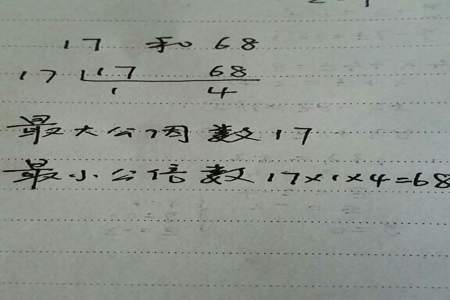 17 和 68
17 17 68
1 4
最大公因数 17
最小公倍数 17×1×4=68